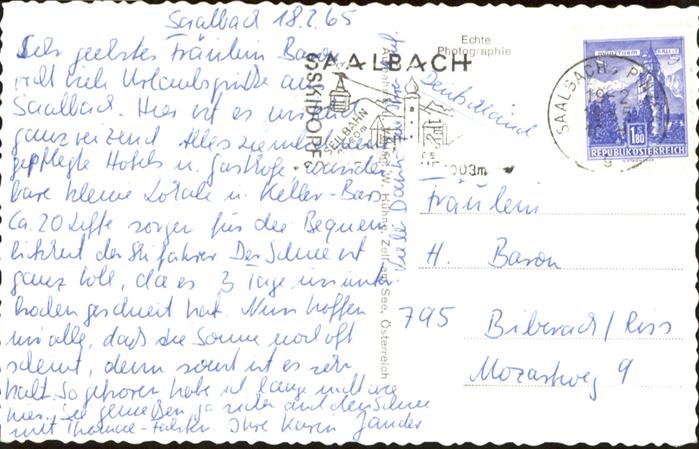 Saalbach 18.2.65
Sehr geehrtes Fräulein Baron
viele Urlaubsgrüße aus
Saalbach. Hier ist es
ganz reizend. Alles
gepflegte Hotels u. Gasthöfe, wunder
bare kleine Lokale u. Keller-Bars
Ca. 20 Lifte sorgen für die Bequem
lichkeit der Skifahrer Der Schnee ist
ganz toll, da es 3 Tage ununter
brochen geschneit hat. Nun hoffen
wir alle, daß die Sonne noch oft
scheint, denn sonst ist es sehr
kalt. So gefroren habe ich lange nicht wie
hier. Sie genießen ja sicher auch den Schnee
mit Ihre Karen Jander
Vielen Dank für Ihre
Echte
Photographie
W. Huhne, Zell am See, Österreich
SAALBACH
SKIDORF
SEILBAHN
003m
SAALBACH, P
19-2
1.80
REPUBLIK ÖSTERREICH
Deutschland
Fräulein
H. Baron
795 Biberach/Riss
Mozartweg 9